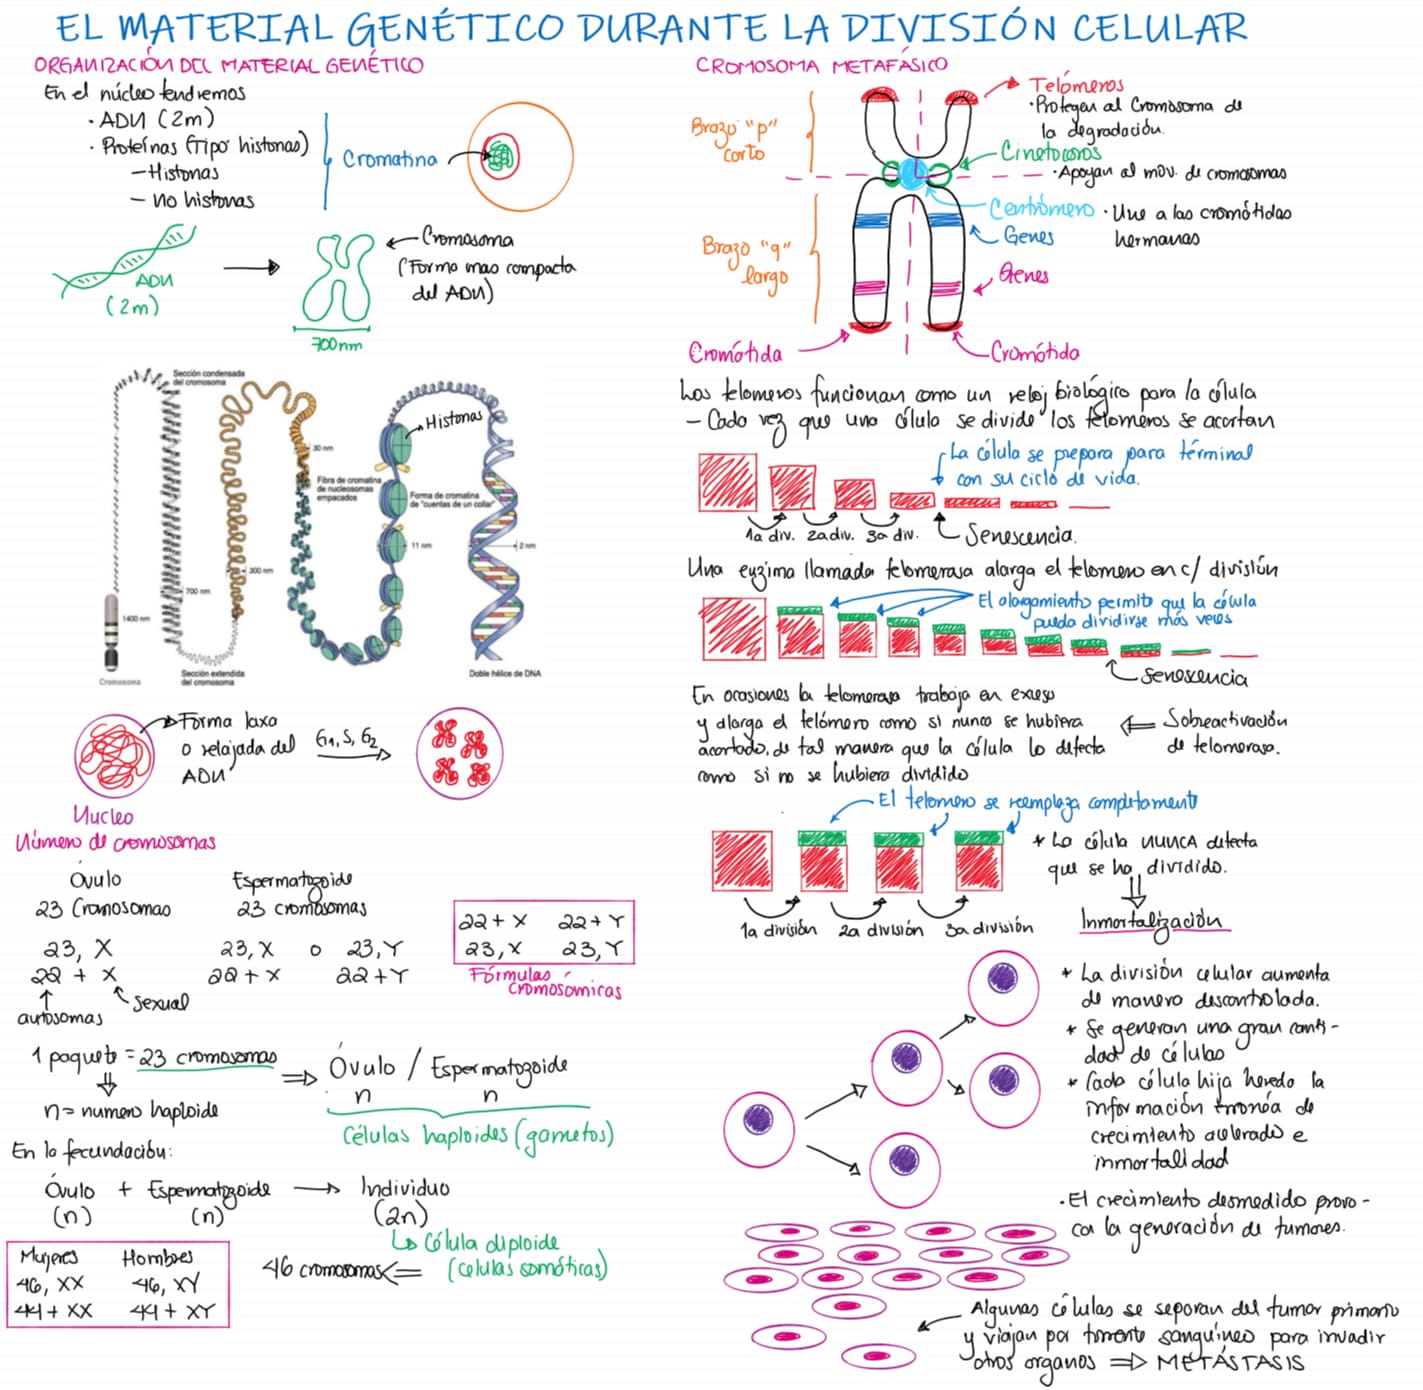 EL MATERIAL GENÉTICO DURANTE LA DIVISIÓN CELULAR
ORGANIZACIÓN DEL MATERIAL GENÉTICO
En el núcleo tendremos
· ADN (2m)
· Proteínas (Tipo histonas)
– Histonas
– no histonas
Cromatina
ADN
(2m)
Cromosoma
(Forma mas compacta
del ADN)
700nm
Sección condensada
del cromosoma
Histonas
30 nm
Fibra de cromatina
de nucleosomas
empacados
Forma de cromatina
de "cuentas de un collar"
11 nm
2 nm
300 nm
700 nm
1400 nm
Cromosoma
Sección extendida
del cromosoma
Doble hélice de DNA
Forma laxa
o relajada del
ADN
G1, S, G2
Nucleo
Número de cromosomas
Óvulo
23 Cromosomas
23, X
22 + X
autosomas
sexual
Espermatozoide
23 cromosomas
23, X o 23, Y
22+X 22+Y
22 + X 22 + Y
23, X 23, Y
Fórmulas
cromosomicas
1 paquete = 23 cromosomas
n= numero haploide
Óvulo / Espermatozoide
n n
Células haploides (gametos)
En la fecundación:
Óvulo + Espermatozoide → Individuo
(n) (n) (2n)
Célula diploide
(celulas somáticas)
46 cromosomas
Mujeres Hombres
46, XX 46, XY
44 + XX 44 + XY
CROMOSOMA METAFÁSICO
Brazo "p"
corto
Brazo "q"
largo
Telómeros
· Protegen al Cromosoma de
la degradación.
Cinetocoros
· Apoyan al mov. de cromosomas
Centrómero · Une a las cromátidas
hermanas
Genes
Genes
Cromátida
Cromátida
Los telomeros funcionan como un reloj biológico para la célula
– Cada vez que una célula se divide los telomeros se acortan
La célula se prepara para términal
con su ciclo de vida.
1a div. 2a div. 3a div.
Senescencia.
Una enzima llamada telomerasa alarga el telomero en c/ división
El alargamiento permite que la célula
pueda dividirse más veces
Senescencia
En ocasiones la telomerasa trabaja en exceso
y alarga el telómero como si nunca se hubiera
acortado, de tal manera que la célula lo detecta
como si no se hubiera dividido
Sobreactivación
de telomerasa.
El telomero se reemplaza completamente
1a división 2a división 3a división
* La célula NUNCA detecta
que se ha dividido.
Inmortalización
* La división celular aumenta
de manera descontrolada.
* Se generan una gran canti-
dad de células
* Cada célula hija hereda la
información erronéa de
crecimiento acelerado e
inmortalidad
· El crecimiento desmedido provo-
ca la generación de tumores.
Algunas células se separan del tumor primario
y viajan por torrente sanguíneo para invadir
otros organos ⇒ METÁSTASIS